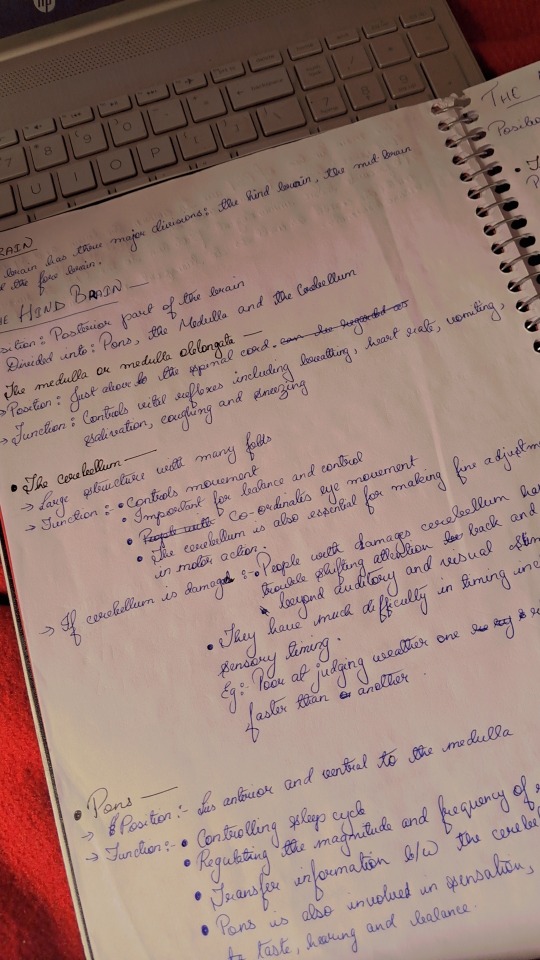 hp
Backspace
7
8
9
0
U
I
O
P
7
8
9
THE
Positio
RAIN
brain has three major divisions: the hind brain, the mid brain
the fore brain.
HE HIND BRAIN —
sition: Posterior part of the brain
Divided into: Pons, the Medulla and the Cerebellum
The medulla or medulla oblongata —
→ Position: Just above to the spinal cord. can be regarded as
→ Function: Controls vital reflexes including breathing, heart rate, vomiting,
salivation, coughing and sneezing
• The cerebellum —
→ Large structure with many folds
→ Function: • Controls movement
• Important for balance and control
• People with Co-ordinates eye movement
• The cerebellum is also essential for making fine adjustm
in motor action.
→ If cerebellum is damage :- • People with damages cerebellum ha
trouble shifting attention back and
beyond auditory and visual stim
• They have much difficulty in timing inc
sensory timing.
Eg: Poor at judging weather one
faster than another.
• Pons —
→ Position:- Lies anterior and ventral to the medulla
→ Function:- • Controlling sleep cycle
• Regulating the magnitude and frequency of
• Transfer information b/w the cerebel
• Pons is also involved in sensation,
to taste, hearing and balance.